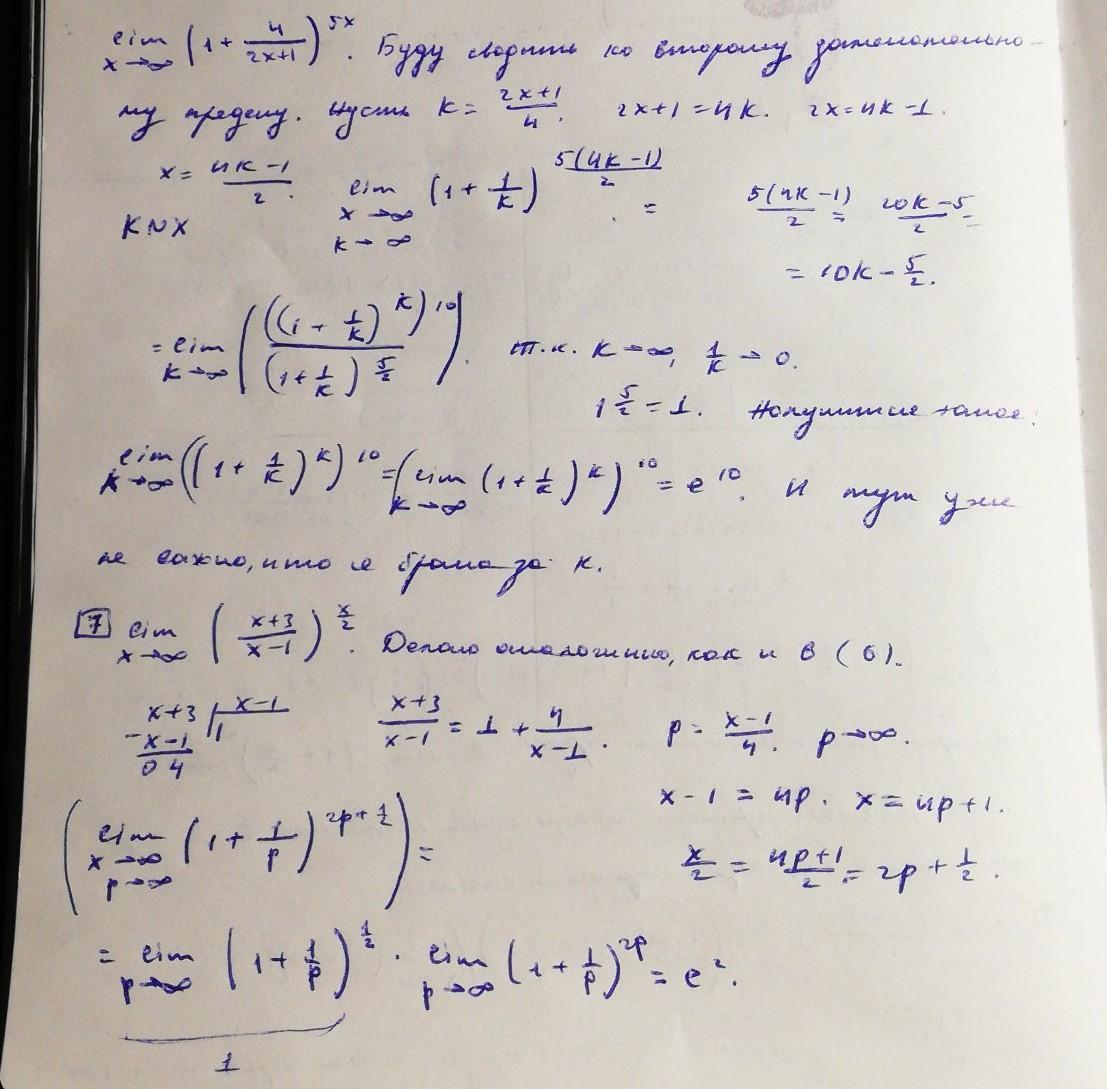 lim x→∞ (1 + 4/(2x+1))^(5x). Буду сводить ко второму замечательно-
му пределу. Пусть k = (2x+1)/4. 2x+1 = 4k. 2x = 4k-1.
x = (4k-1)/2. lim x→∞ k→∞ (1 + 1/k)^(5(4k-1)/2) = 5(4k-1)/2 = (20k-5)/2 =
k~x
= 10k - 5/2.
= lim k→∞ (((1 + 1/k)^k)^10 / (1 + 1/k)^(5/2)). т.к. k→∞, 1/k → 0.
1^(5/2) = 1. Получится такое:
lim k→∞ ((1 + 1/k)^k)^10 = (lim k→∞ (1 + 1/k)^k)^10 = e^10. И тут уже
не важно, что я брала за k.
7 lim x→∞ ((x+3)/(x-1))^(x/2). Делаю аналогично, как и в (6).
x+3 | x-1
- x-1 | 1
0 4
(x+3)/(x-1) = 1 + 4/(x-1). p = (x-1)/4. p→∞.
x-1 = 4p. x = 4p+1.
(lim x→∞ p→∞ (1 + 1/p)^(2p + 1/2)) = x/2 = (4p+1)/2 = 2p + 1/2.
= lim p→∞ (1 + 1/p)^(1/2) · lim p→∞ (1 + 1/p)^(2p) = e^2.
1